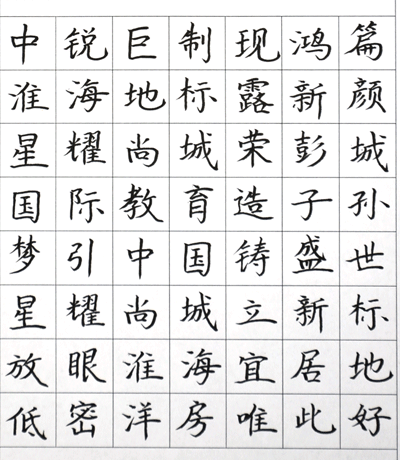 中锐巨制现鸿篇
淮海地标露新颜
星耀尚城荣彭城
国际教育造子孙
梦引中国铸盛世
星耀尚城立新标
放眼淮海宜居地
低密洋房唯此好